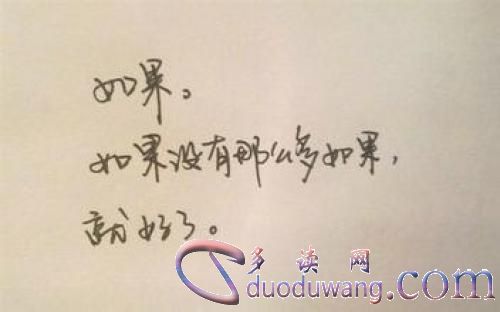 如果。
如果没有那么多如果，
就好了。
多读网
duoduwang.com